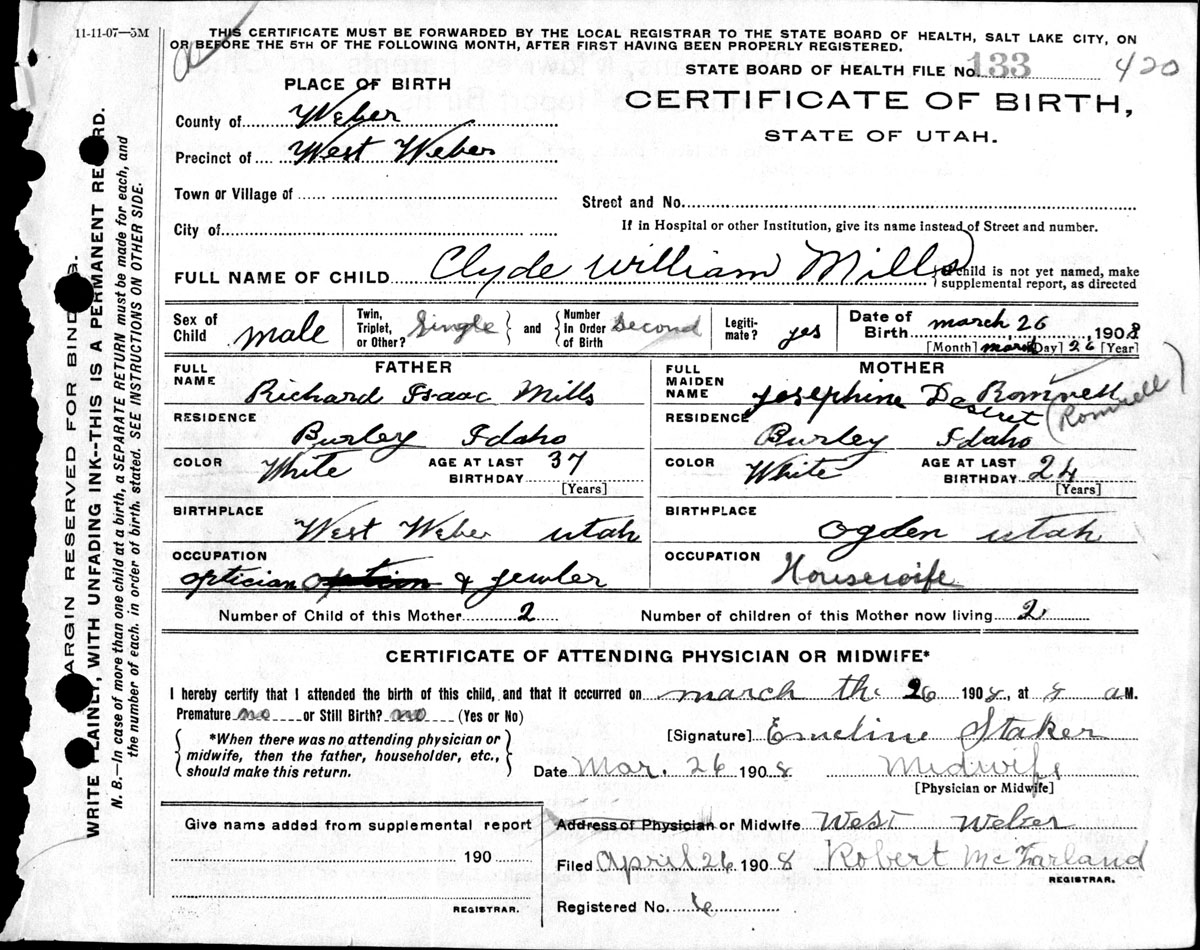 11-11-07—5M
THIS CERTIFICATE MUST BE FORWARDED BY THE LOCAL REGISTRAR TO THE STATE BOARD OF HEALTH, SALT LAKE CITY, ON
OR BEFORE THE 5TH OF THE FOLLOWING MONTH, AFTER FIRST HAVING BEEN PROPERLY REGISTERED.
STATE BOARD OF HEALTH FILE No. 133 420
PLACE OF BIRTH
CERTIFICATE OF BIRTH,
STATE OF UTAH.
County of Weber
Precinct of West Weber
Town or Village of
Street and No.
City of
If in Hospital or other Institution, give its name instead of Street and number.
FULL NAME OF CHILD Clyde William Mills
child is not yet named, make
supplemental report, as directed
Sex of Child male
Twin, Triplet, or Other? Single
and Number In Order of Birth second
Legiti-mate? yes
Date of Birth march 26 1908
[Month] march [Day] 26 [Year]
FATHER
FULL NAME Richard Isaac Mills
RESIDENCE Burley Idaho
COLOR White AGE AT LAST BIRTHDAY 37 [Years]
BIRTHPLACE West Weber utah
OCCUPATION optician & Jewler
MOTHER
FULL MAIDEN NAME Josephine Deseret Romrell (Romrell)
RESIDENCE Burley Idaho
COLOR White AGE AT LAST BIRTHDAY 24 [Years]
BIRTHPLACE Ogden utah
OCCUPATION Housewife
Number of Child of this Mother 2 Number of children of this Mother now living 2
CERTIFICATE OF ATTENDING PHYSICIAN OR MIDWIFE*
I hereby certify that I attended the birth of this child, and that it occurred on march th 26 1908, at 8 a M.
Premature no or Still Birth? no (Yes or No)
*When there was no attending physician or
midwife, then the father, householder, etc.,
should make this return.
[Signature] Emeline Staker
Date Mar. 26 1908 Midwife
[Physician or Midwife]
Give name added from supplemental report
190
REGISTRAR.
Address of Physician or Midwife West Weber
Filed April 26 1908 Robert McFarland
REGISTRAR.
Registered No. 6
ARGIN RESERVED FOR BINDING.
WRITE PLAINLY, WITH UNFADING INK--THIS IS A PERMANENT RECORD.
N. B.—In case of more than one child at a birth, a SEPARATE RETURN must be made for each, and
the number of each, in order of birth, stated. SEE INSTRUCTIONS ON OTHER SIDE.